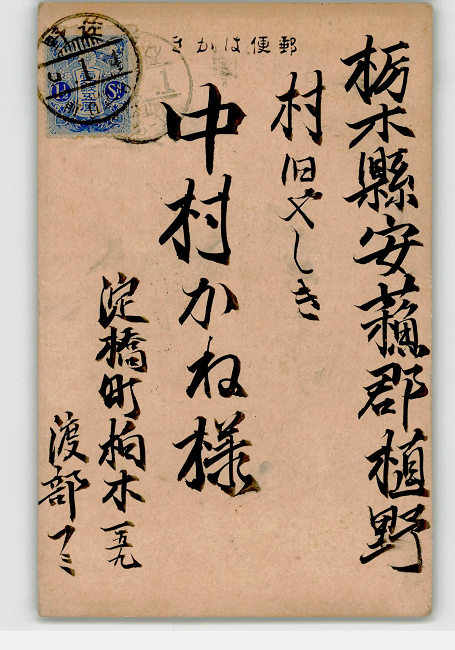 郵便はかき
栃木縣安蘓郡植野
村旧やしき
中村かね様
淀橋町柏木一五九
渡部フミ